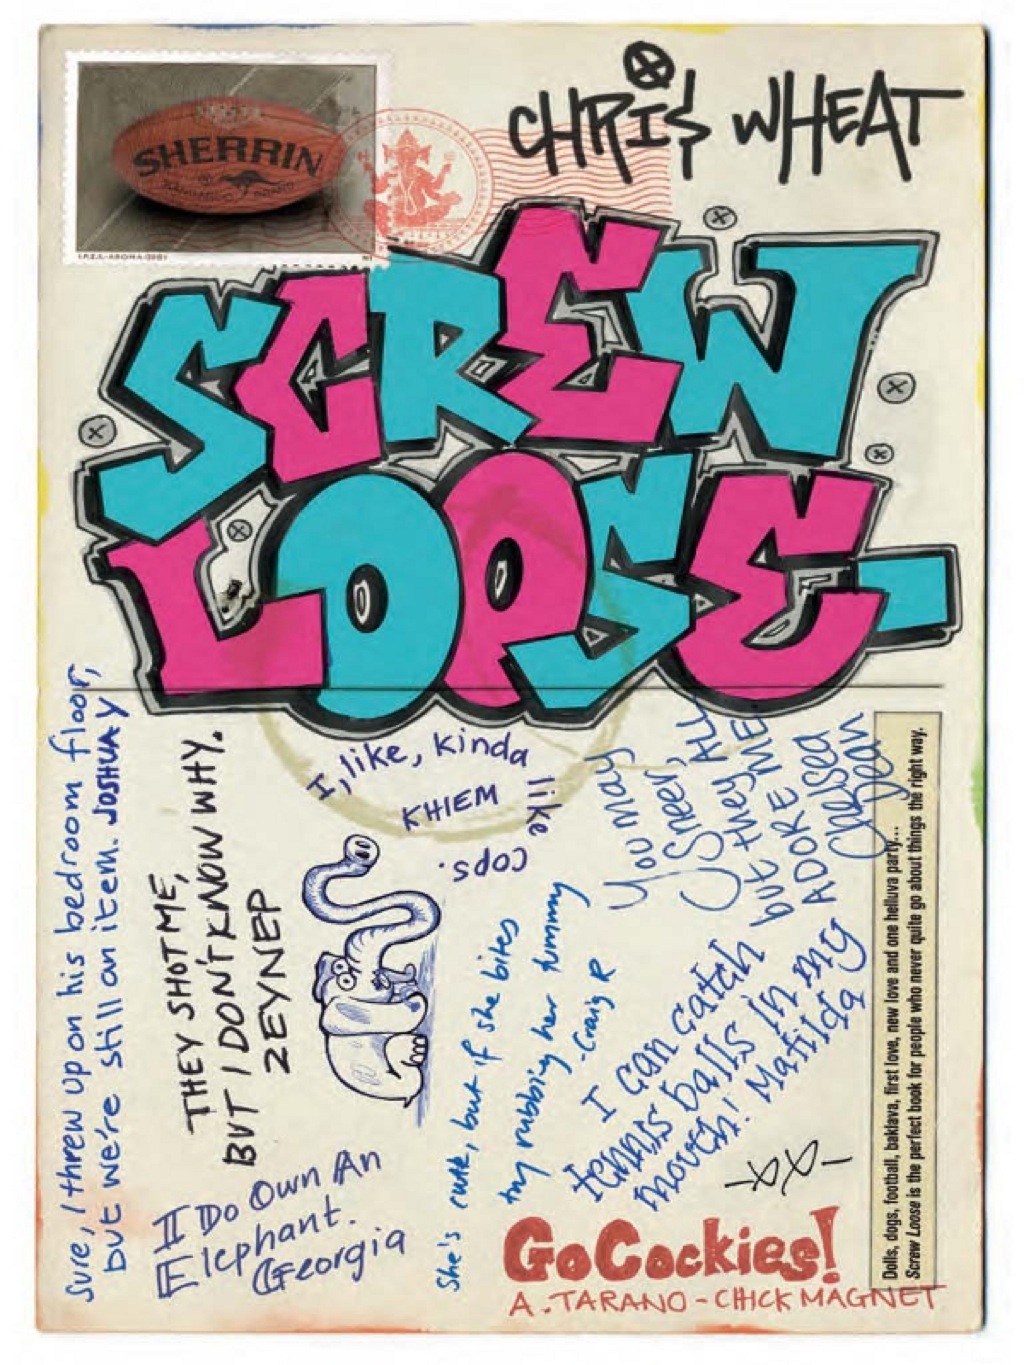 SHERRIN
KANGAROO BRAND
CHRIS WHEAT
SCREW
LOOSE
Sure, I threw up on his bedroom floor,
but we're still an item. JOSHUA
THEY SHOT ME,
BUT I DON'T KNOW WHY.
ZEYNEP
I, like, kinda like cops.
KHIEM
You may
Sneer,
but they ALL
ADORE ME
Chelsea
Dean
I Do Own An
Elephant.
Georgia
She's rude, but if she bites
try rubbing her tummy
-Craig R
I can catch
tennis balls in my
mouth! Matilda
-XX-
Go Cockies!
A. TARANO - CHICK MAGNET
Dolls, dogs, football, baklava, first love, new love and one helluva party...
Screw Loose is the perfect book for people who never quite go about things the right way.